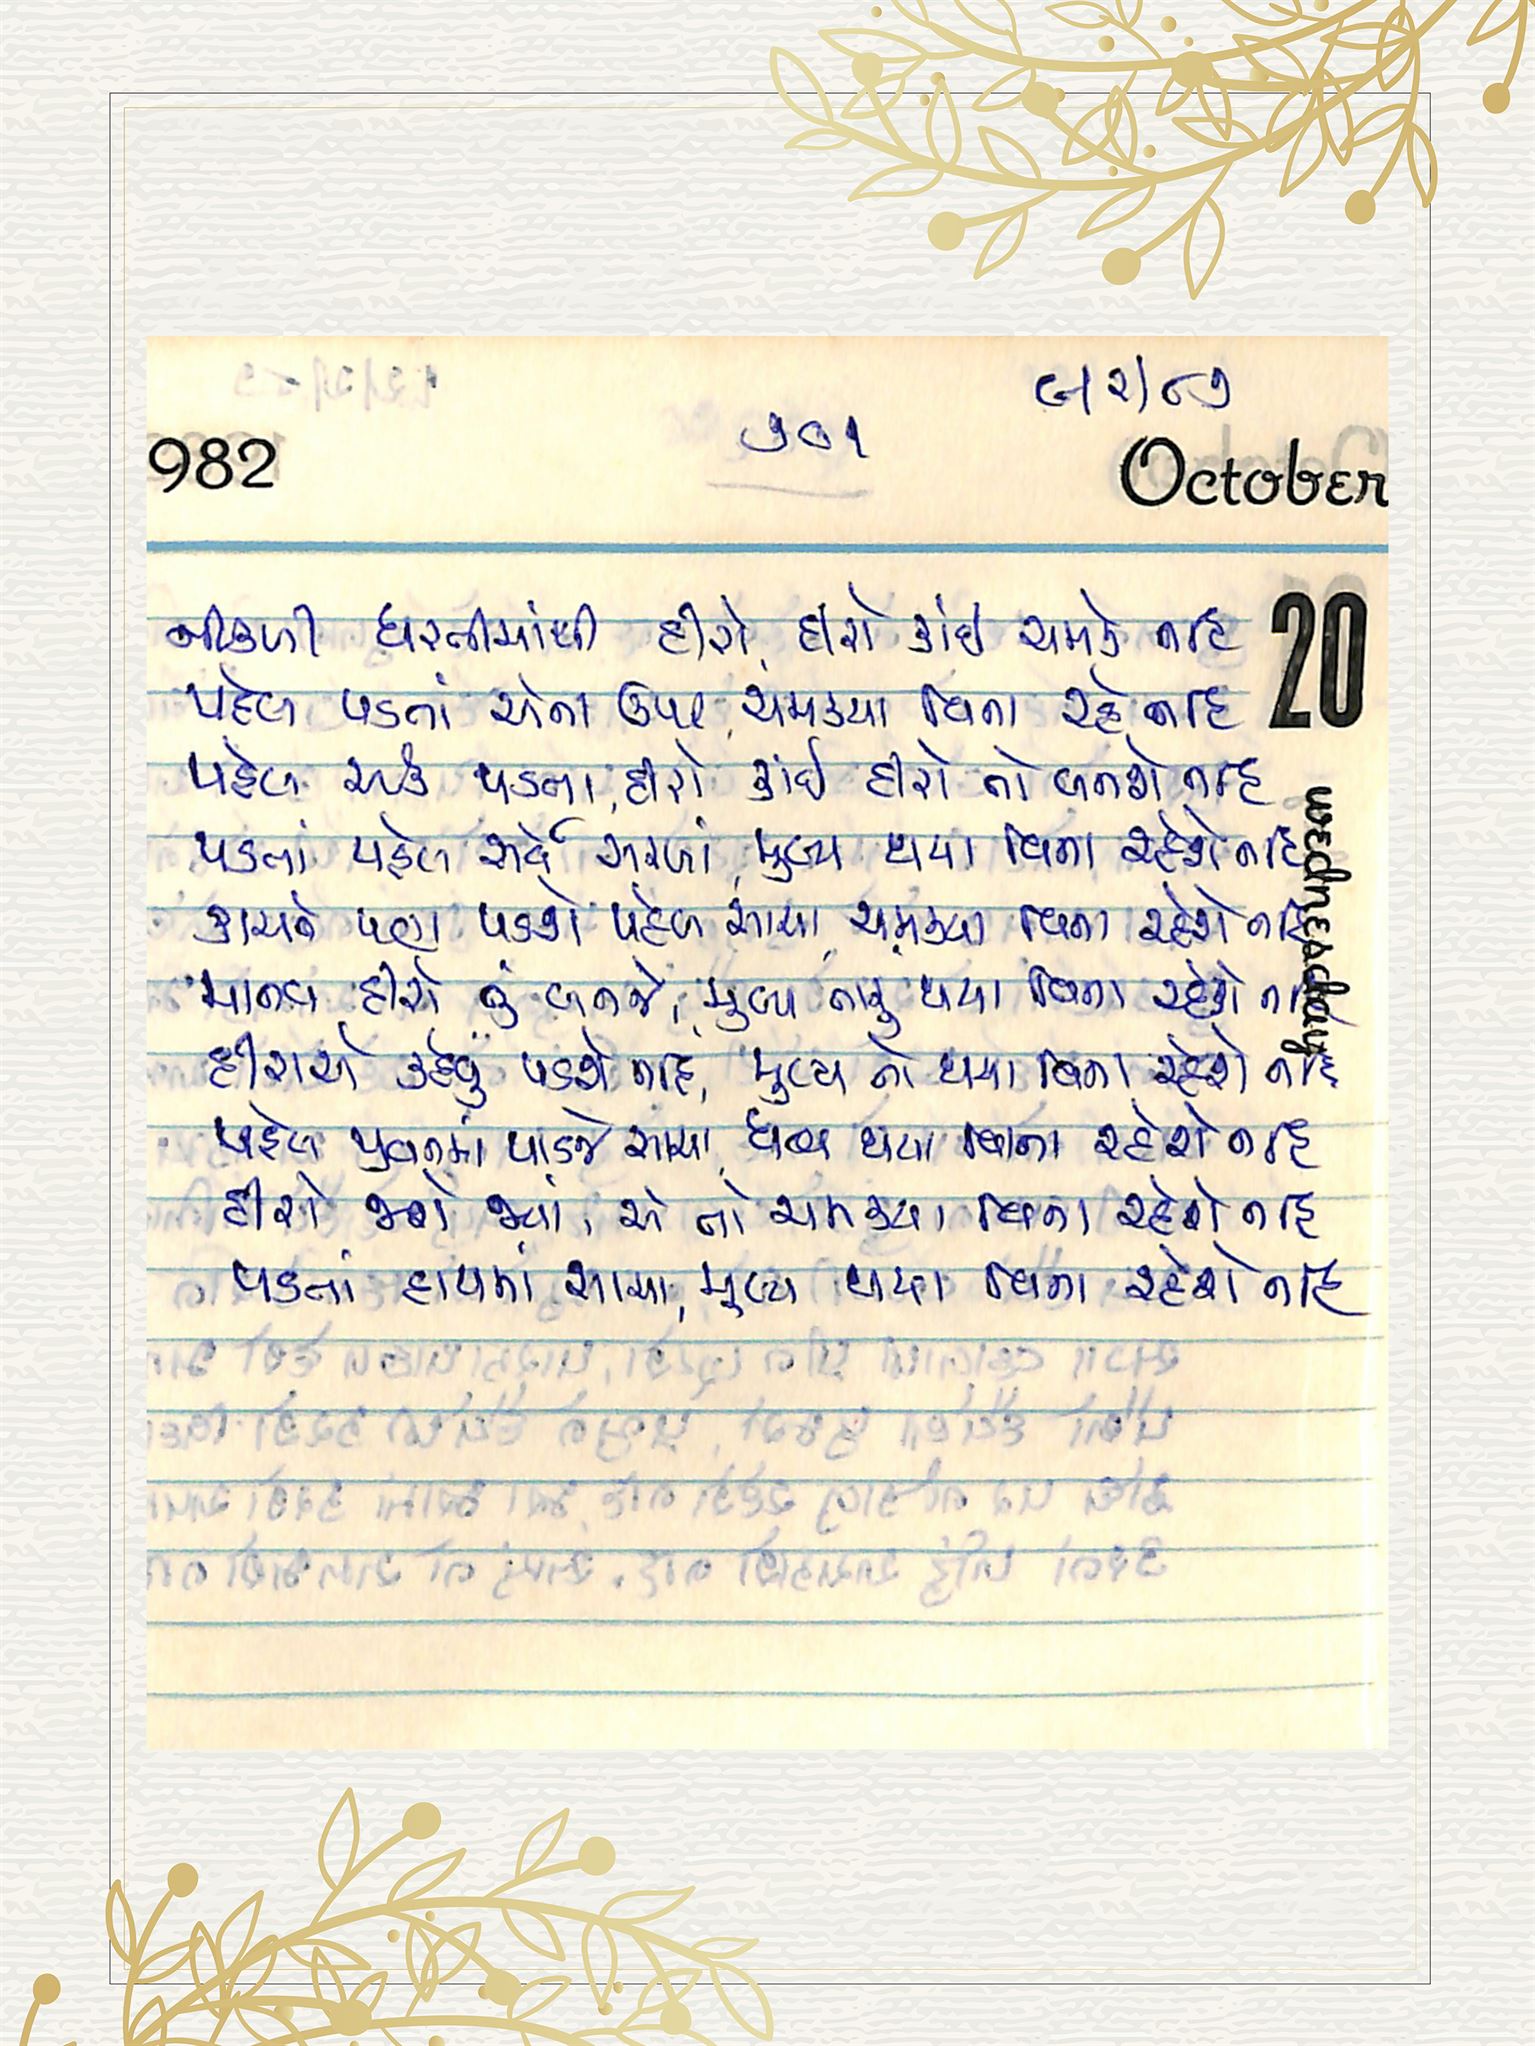 ૯/૨/૮૭
૭૦૧
982
October
20
wednesday
નીકળી ધરતીમાંથી હીરો, હીરો કાંઈ ચમકે નહિ
પહેલ પડતાં એના ઉપર, ચમક્યા વિના રહે નહિ
પહેલ એક પડતા, હીરો કાંઈ હીરો તો બનશે નહિ
પડતાં પહેલ સર્વે સરખાં, મુલ્ય થયા વિના રહેશે નહિ
કાચને પણ પડશે પહેલ સાચા, ચમક્યા વિના રહેશે નહિ
માનવ હીરો તું બનજે, મુલ્ય તારૂં થયા વિના રહેશે નહિ
હીરાએ કહેવું પડશે નહિ, મુલ્ય તો થયા વિના રહેશે નહિ
પહેલ જીવનમાં પાડજે સાચા, ધન્ય થયા વિના રહેશે નહિ
હીરો જાશે જ્યાં, એ તો ચમક્યા વિના રહેશે નહિ
પડતાં હાથમાં સાચા, મુલ્ય થયા વિના રહેશે નહિ